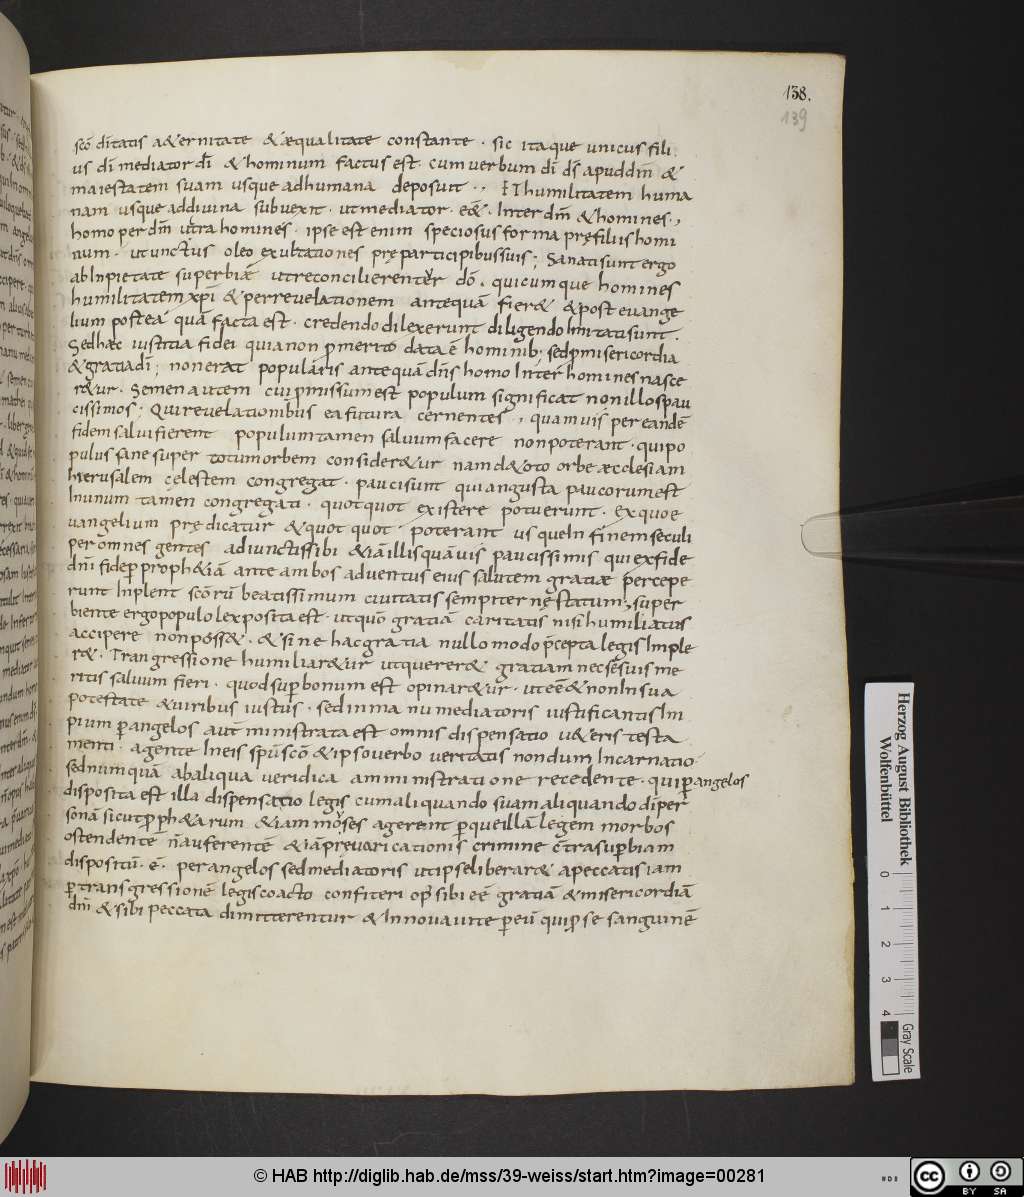 138.
139
scō d͞itatis a&ernitate &æqualitate constante · sic itaque unicus fili
us d͞i mediator d͞i & hominum factus est · cum verbum d͞i d͞s apud d͞m &
maiestatem suam usque ad humana deposuit ·, ET humilitatem huma
nam usque ad divina subvexit · ut mediator · e͞e& · Inter d͞m & homines ·,
homo per d͞m ultra homines · ipse est enim speciosus forma prę filiis homi
num · ut unctus oleo exultationes prę participibus suis ; Sanati sunt ergo
ab Inpietate superbiæ ut reconcilierentur dō · quicumque homines
humilitatem xp͞i & per revelationem antequā fier& & post euange
lium posteā quā facta est · credendo dilexerunt diligendo Imitati sunt ·
Sed hæc iustitia fidei quia non p̄ merito data ē hominib; sed p̄ misericordia
& gratia d͞i ; non erat popularis antequā d͞n͞s homo Inter homines nasce
r&ur · Semen autem cui p̄missum est populum significat non illos pau
cissimos ; Qui revelationibus ea futura cernentes , quamvis per eandē
fidem salvi fierent populum tamen salvum facere non poterant · qui po
pulus sane super totum orbem consider&ur nam d& oto orbe æcclesiam
hierusalem cęlestem congregat · pauci sunt qui angusta paucorum est
In unum tamen congregati · quotquot existere potuerunt · Ex quo e
uangelium prędicatur & quot quot · poterant usque In finem seculi
per omnes gentes adiunctis sibi & iā illis quāvis paucissimis qui ex fide
d͞ni fide p̄ proph&iā ante ambos adventus eius salutem gratiæ percepe
runt Inplent scōrū beatissimum civitatis sempiternę statum ; super
biente ergo populo lex posita est · ut quō gratiā caritatis nisi humiliatus
accipere non poss& · & sine hac gratia nullo modo p̄cepta legis Imple
r& · Trangressione humiliar&ur ut quærer& gratiam nec se suis me
ritis salvum fieri · quod sup̄bonum est opinar&ur · ut eē& non In sua
potestate & viribus iustus · sed In manu mediatoris iustificantis Im
pium p̄ angelos aut̄ ministrata est omnis dispensatio v&eris testa
menti · agente In eis sp͞u scō & ipso verbo veritatis nondum Incarnatio
sed numquā ab aliqua veridica amministratione recedente · qui p̄ angelos
disposita est illa dispensatio legis cum aliquando suam aliquando d͞i per
sonā sicut p̄ph&arum & iam moyses agerent p̄que illā legem morbos
ostendentē n̄ auferentē & iā prevaricationis crimine c̄tra sup̄biam
dispositū · ē · per angelos sed mediatoris uti p̄se liberar& a peccatis iam
p̄ transgressionē legis coacto confiteri op̄ sibi eē gratiā & misericordiā
d͞ni & sibi peccata dimitterentur & In nova vite p̄ eū qui p̄ se sanguinē
Herzog August Bibliothek
Wolfenbüttel
0 1 2 3 4
Gray Scale
© HAB http://diglib.hab.de/mss/39-weiss/start.htm?image=00281
cc BY SA